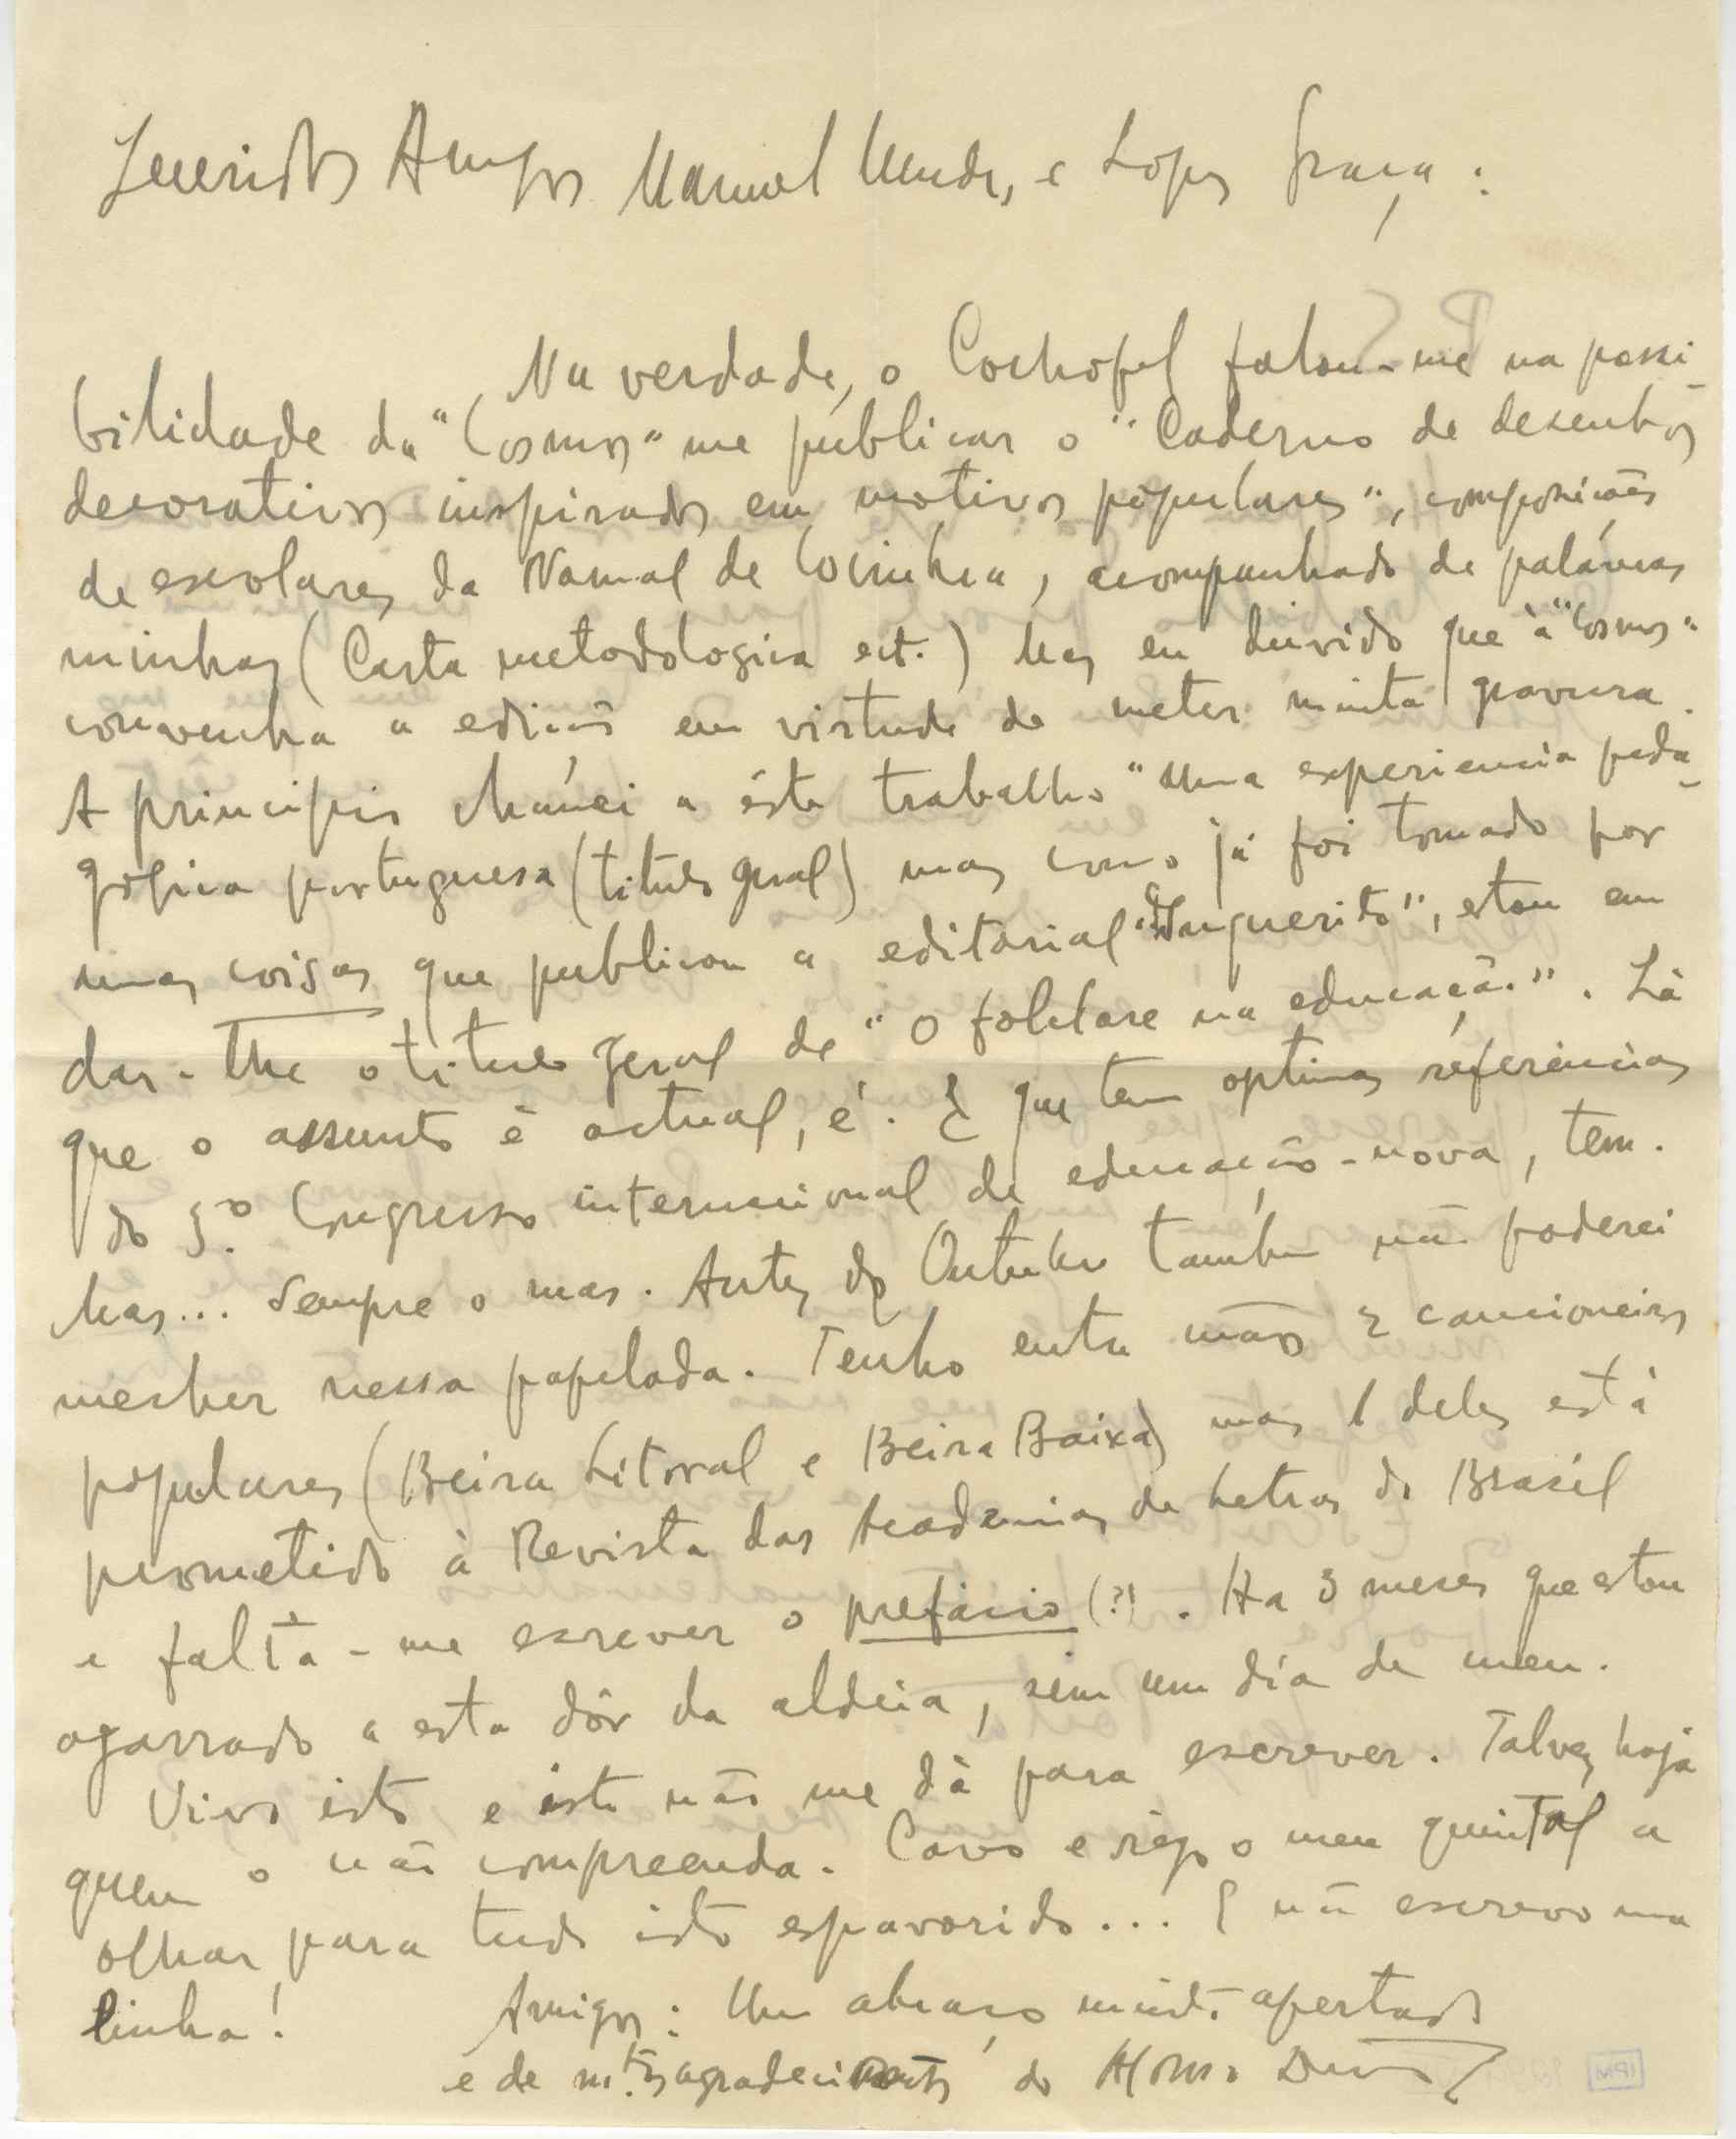 Queridos Amigos Manuel Mendes, e Lopes Graça:
Na verdade, o Cochofel falou-me na possi-
bilidade da "Cosmos" me publicar o "Caderno de desenhos
decorativos inspirados em motivos populares", composicões
de escolares da Normal de Coimbra, acompanhado de palávras
minhas (Carta metodologica ect.) Mas eu duvido que à "Cosmos"
convenha a edição em virtude de meter muita gravura.
A principio chamei a éste trabalho "Uma experiencia peda-
gógica portuguesa (titulo geral) mas como já foi tomado por
umas coisas que publicou a editorial "Inquerito", estou em
dar-lhe o titulo geral de "O folclore na educação". Lá
que o assunto é actual, é. E que tem optimas referências
do 5.º Congresso internacional de educação-nova, tem.
Mas... Sempre o mas. Antes de Outubro tambem não poderei
mecher nessa papelada. Tenho entre mãos 2 cancioneiros
populares (Beira Litoral e Beira Baixa) mas 1 deles está
prometido à Revista das Academias de Letras do Brasil
e falta-me escrever o prefácio (?). Ha 3 meses que estou
agarrado a esta dôr da aldeia, sem um dia de meu.
Vivo isto e isto não me dá para escrever. Talvez haja
quem o não compreenda. Cavo e rego o meu quintal a
olhar para tudo isto espavorido... E não escrevo uma
linha!
Amigos: Um abraço muito apertado
e de m.tos agradecimentos do Afonso Duarte